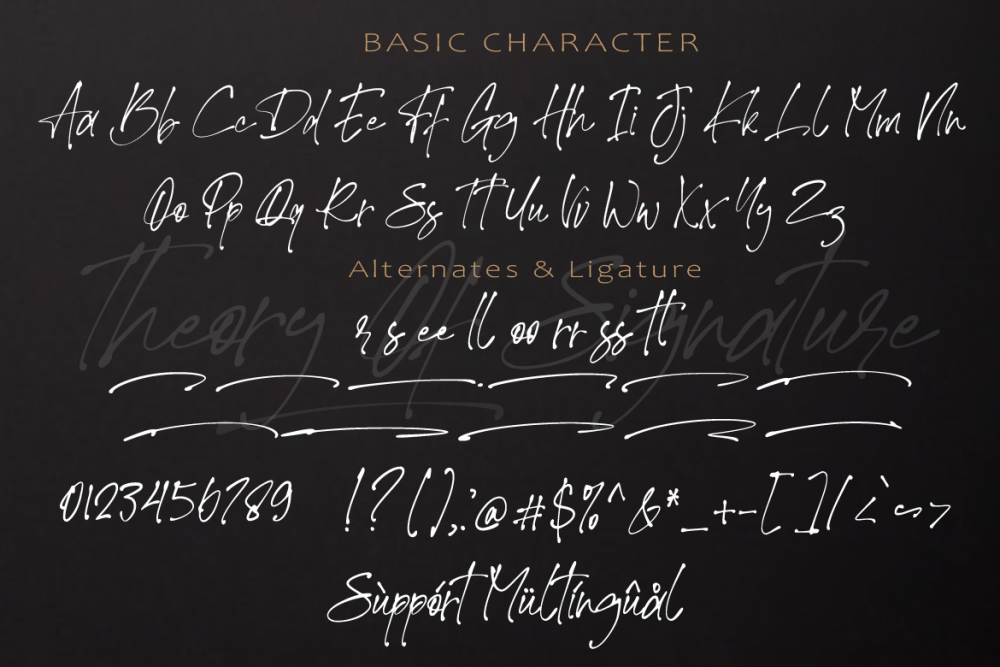 BASIC CHARACTER
Aa Bb Cc Dd Ee Ff Gg Hh Ii Jj Kk Ll Mm Nn
Oo Pp Qq Rr Ss Tt Uu Vv Ww Xx Yy Zz
Theory Of Signature
Alternates & Ligature
r s ee ll oo rr ss tt
0123456789
!?(),;'@#$%^&*_+-[]|<`~>
Sùppórt Mültíngûål